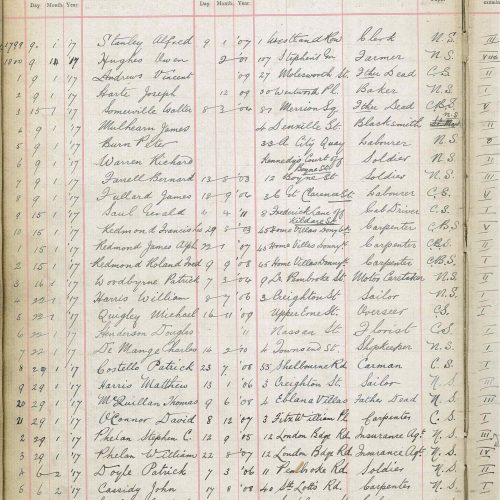 Day Month Year Day Month Year
1799 9 1 '17 Stanley Alfred 9 1 '07 1 Westland Row Clerk N.S. III
1800 9 1 '17 Hughes Owen 2 '01 107 Stephen's Gn Farmer N.S.
1 9 1 '17 Andrews Vincent '09 27 Molesworth St. Fther Dead C.S.
2 9 1 '17 Harte Joseph 12 09 30 Wentworth Pl. Baker N.S.
3 15 1 '17 Somerville Walter 8 3 '06 87 Merrion Sq. Fther Dead C.B.S.
4 9 1 '17 Mulhearn James 4 Denzille St. Blacksmith N.S.
5 9 1 '17 Burn Peter 33 City Quay Labourer N.S.
6 9 1 '17 Warren Richard Kennedy's Court off Boyne St Soldier N.S.
7 9 1 '17 Farrell Bernard 13 3 '03 12 Boyne St Soldier N.S.
8 9 1 '17 Fullard James 18 9 '06 3 Clarence St. Labourer C.S.
9 15 1 '17 Saul Gerald 4 4 '11 8 Frederick Lane off Kildare St. Cab Driver C.S.
10 15 1 '17 Redmond Francis 29 8 '03 45 Home Villas Donny'k Carpenter C.B.S.
1 15 1 '17 Redmond James Alph 22 1 '07 45 Home Villas Donny'k Carpenter C.B.S.
2 15 1 '17 Redmond Roland 9 9 '08 45 Home Villas Donny'k Carpenter C.B.S.
3 16 1 '17 Woodbyrne Patrick 7 3 '04 9 Lr Pembroke St. Motor Caretaker N.S.
4 22 1 '17 Harris William 8 7 '06 3 Creighton St. Sailor N.S.
5 22 1 '17 Quigley Michael 16 11 '09 Upper Erne St. Overseer C.S.
6 22 1 '17 Henderson Douglas '11 Nassau St. Florist C.S.
7 22 1 '17 De Mange Charles 14 2 '10 4 Townsend St. Shopkeeper N.S.
8 29 1 '17 Costello Patrick 23 7 '08 53 Shelbourne Rd Carman C.S.
9 29 1 '17 Harris Matthew 13 1 '06 3 Creighton St. Sailor N.S.
20 29 1 '17 McQuillan Thomas 9 6 '08 4 Eblana Villas Father Dead N.S.
21 29 1 '17 O'Connor David 8 12 '07 3 Fitzwilliam Pl. Carpenter C.S.
2 29 1 '17 Phelan Stephen C. 12 9 '05 12 London Bdge Rd. Insurance Agt. N.S. III
3 29 1 '17 Phelan William 22 8 '07 12 London Bdge Rd. Insurance Agt. N.S. IV
4 6 2 '17 Doyle Patrick 7 3 '06 11 Pembroke Rd. Soldier N.S. I
5 6 2 '17 Cassidy John 17 8 '08 40 St. Lott's Rd. Carpenter N.S. I